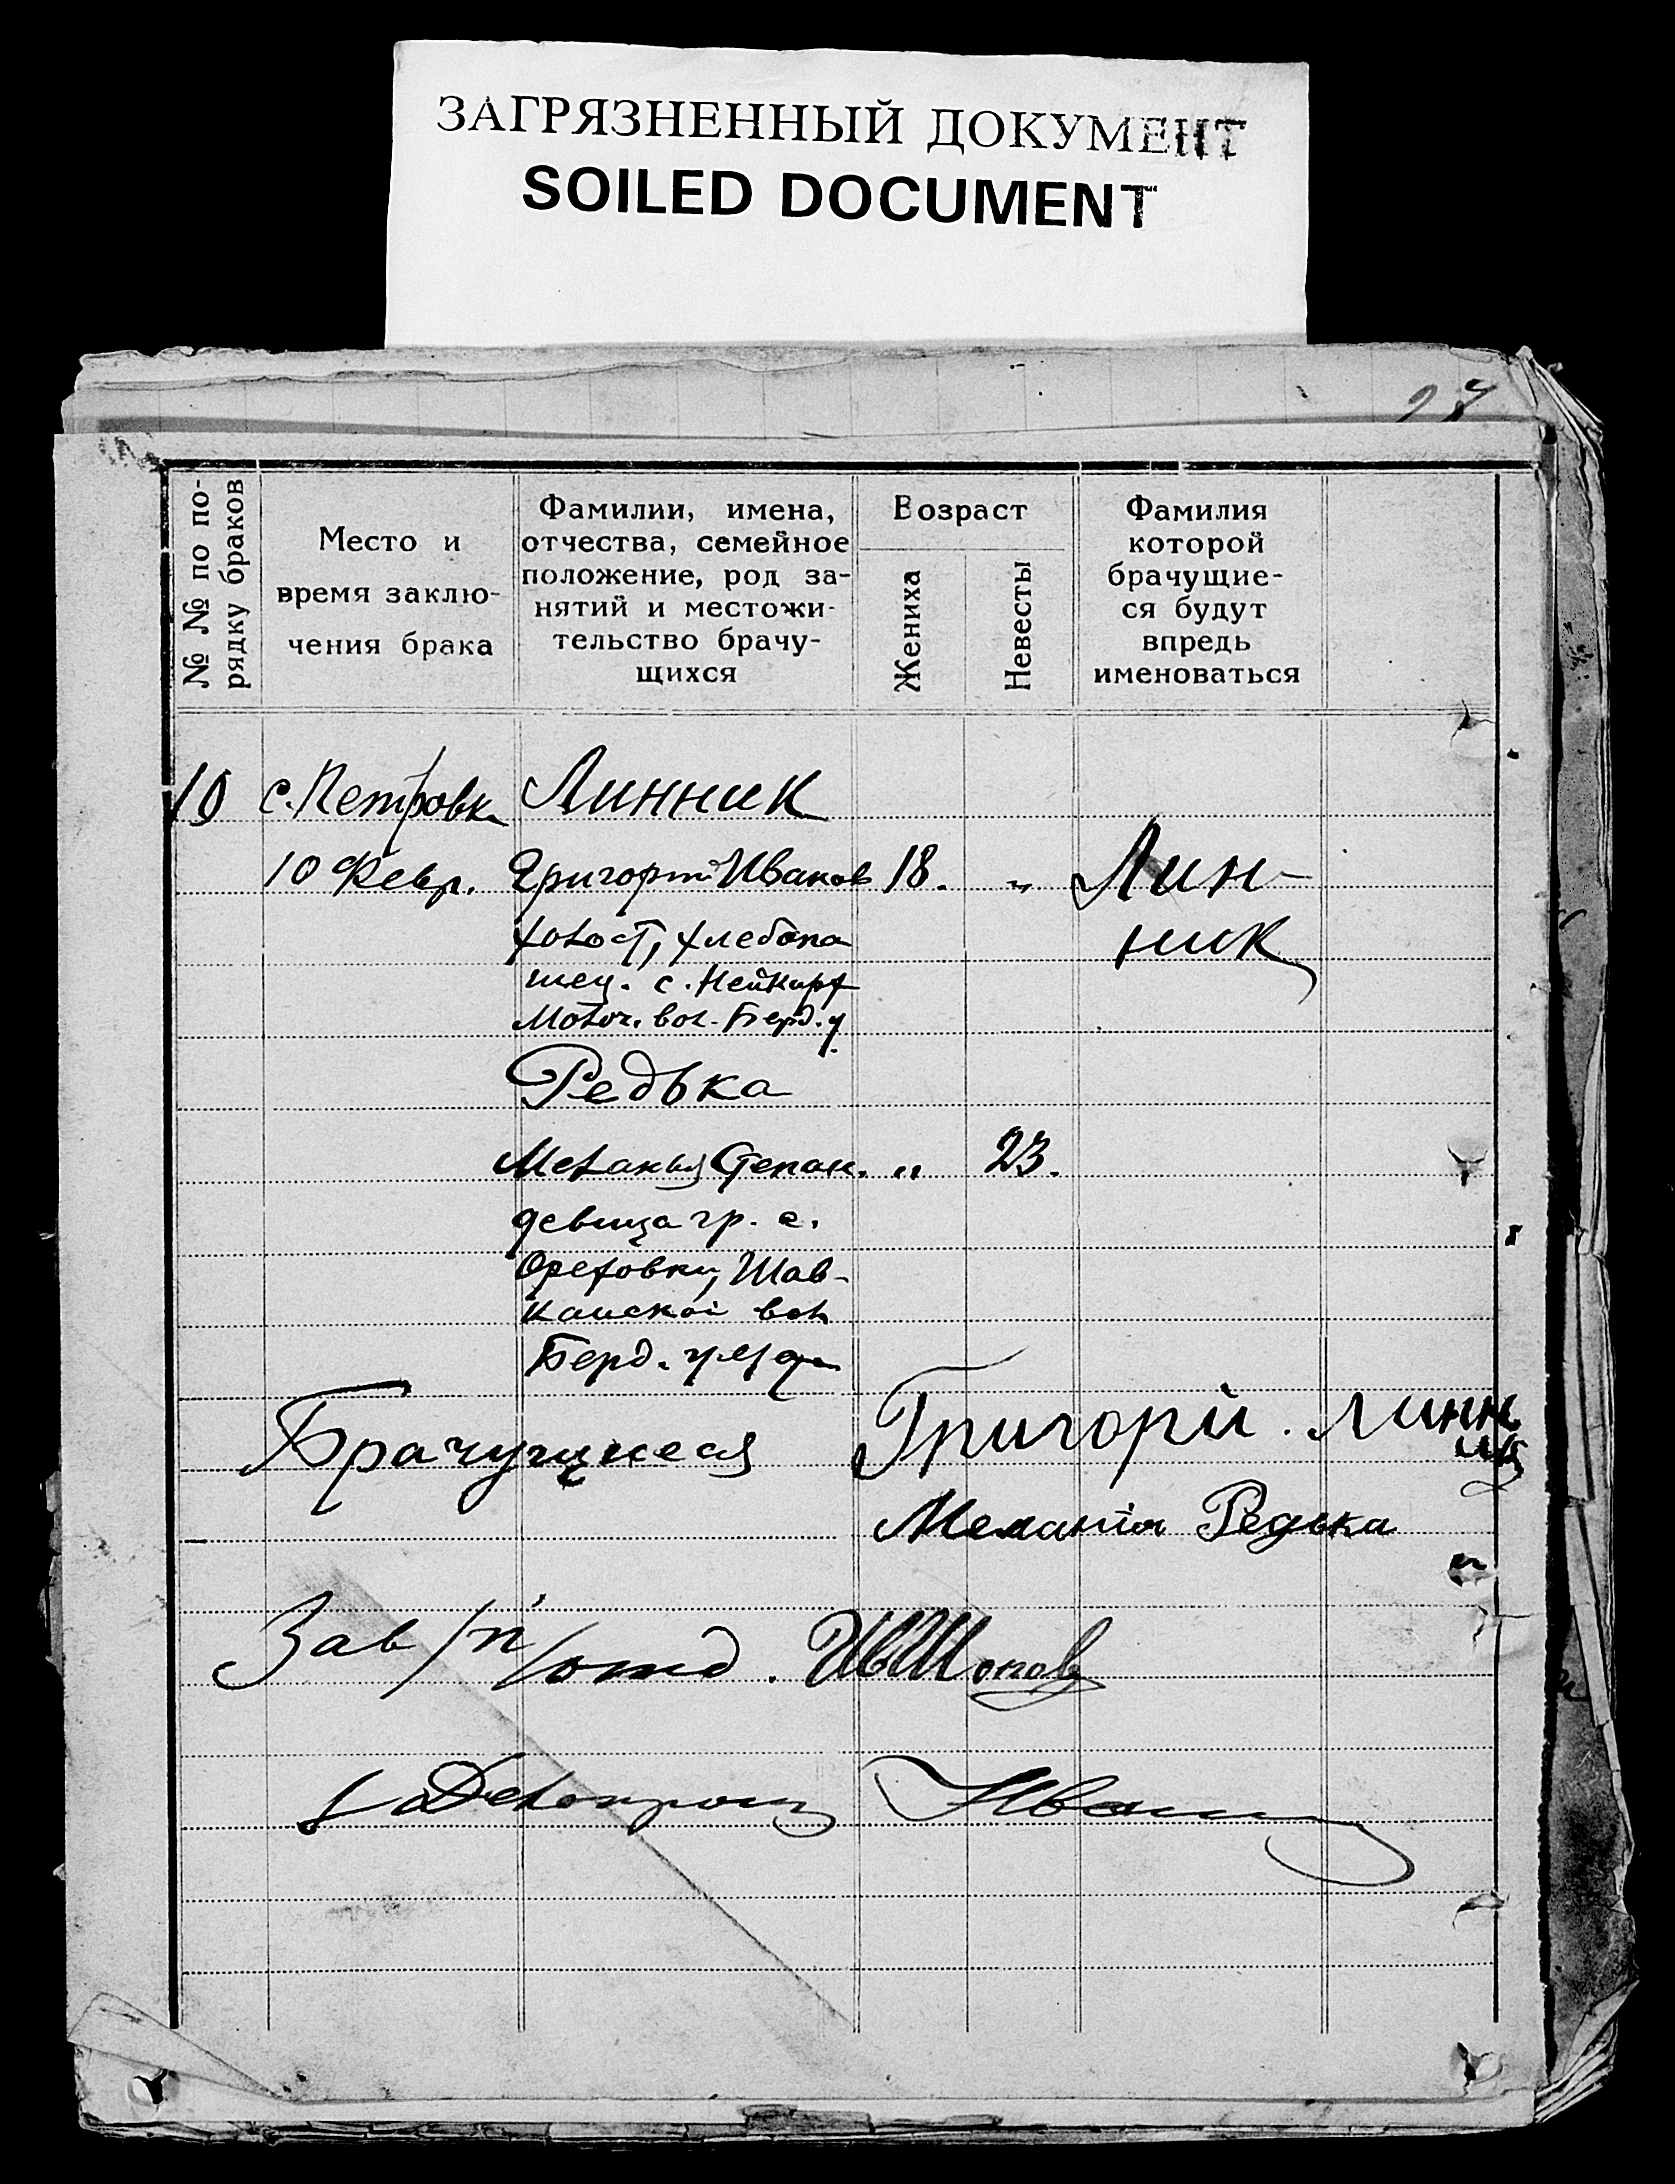 ЗАГРЯЗНЕННЫЙ ДОКУМЕНТ
SOILED DOCUMENT
27
№ № по по-
рядку браков
Место и
время заклю-
чения брака
Фамилии, имена,
отчества, семейное
положение, род за-
нятий и местожи-
тельство брачу-
щихся
Возраст
Жениха
Невесты
Фамилия
которой
брачущие-
ся будут
впредь
именоваться
10 с. Петровка Линник
10 Февр. Григорий Иванов 18. „ Лин-
холост, хлебопа ник
шец. с. Нейкирх
Молоч. вол. Берд. у
Редька
Меланья Степан. „ 23.
девица гр. с.
Ореховки, Шав-
кайской вол
Берд. уезда
Брачущиеся Григорій. Линн
ик
Меланія Редька
Зав/п/отд.
Делопроиз